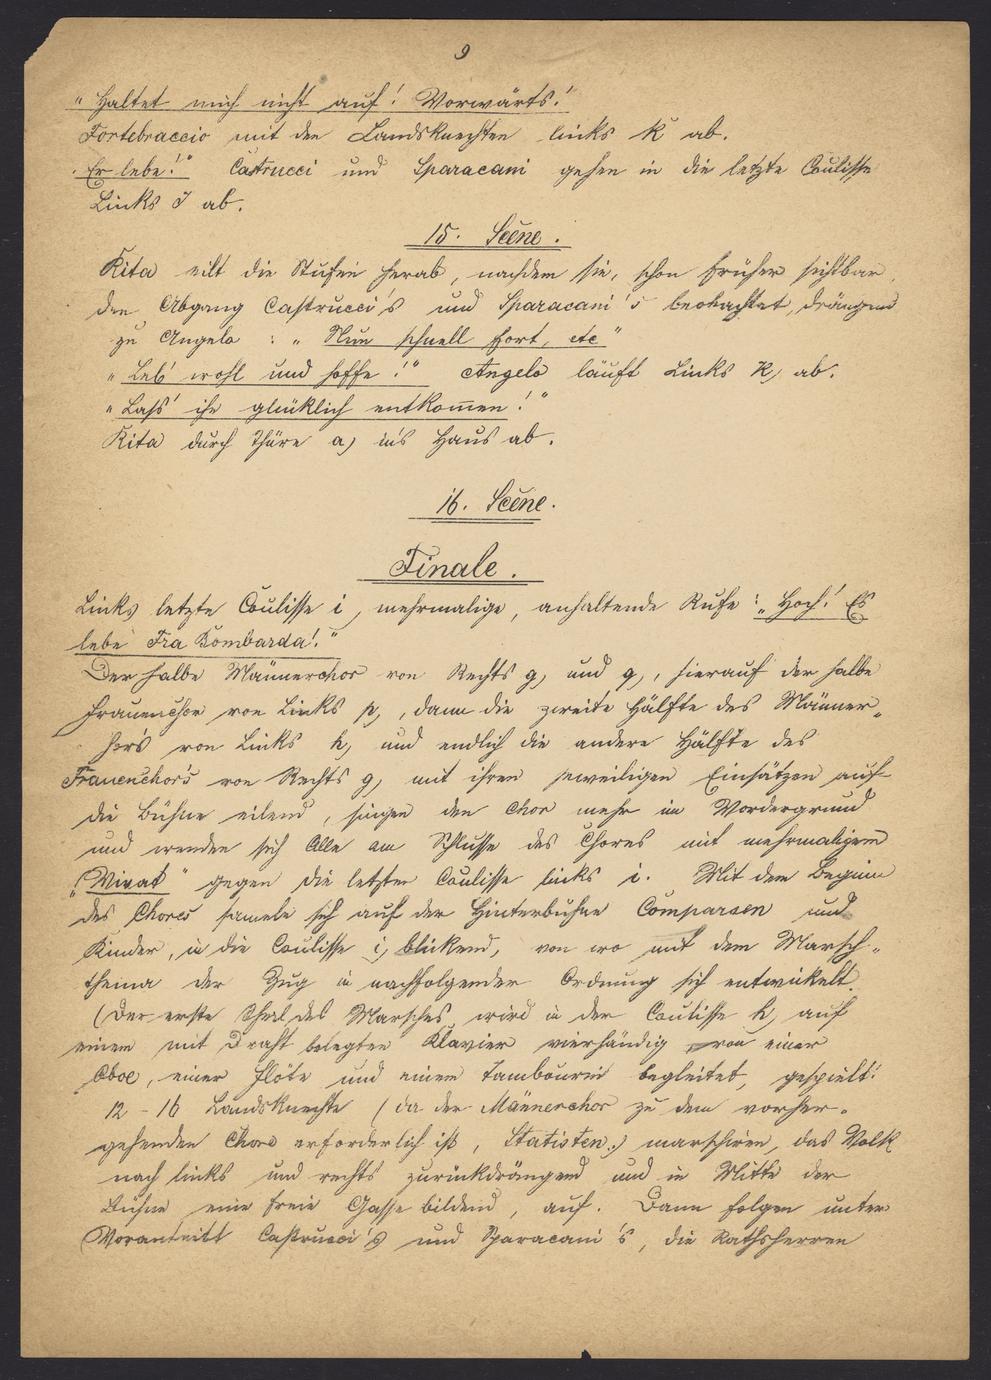 9
„Haltet mich nicht auf! Vorwärts!"
Fortebraccio mit den Landsknechten links K ab.
„Er lebe!" Castrucci und Sparacani gehen in die letzte Coulisse
Links I ab.
15. Scene.
Rita eilt die Stufen herab, nachdem sie, schon früher sichtbar,
den Abgang Castrucci's und Sparacani's beobachtet, drängend
zu Angelo : „Nun schnell fort, etc"
„Leb' wohl und hoffe!" Angelo läuft Links K, ab.
„Lass' ihn glücklich entkom̄en!"
Rita durch Thüre a) in's Haus ab.
16. Scene.
Finale.
Links letzte Coulisse i, mehrmalige, anhaltende Rufe: „Hoch! Es
lebe Fra Bombarda!"
Der halbe Männerchor von Rechts g, und q,, hierauf der halbe
Frauenchor von Links p,, dann die zweite Hälfte des Männer-
chors von Links h, und endlich die andere Hälfte des
Frauenchor's von Rechts g, mit ihren jeweiligen Einsätzen auf
die Bühne eilend, singen den Chor mehr im Vordergrund
und wenden sich Alle am Schlusse des Chores mit mehrmaligem
„Vivat" gegen die letzte Coulisse links i. Mit dem Beginn
des Chores sam̄eln sich auf der Hinterbühne Comparsen und
Kinder, in die Coulisse i, blickend, von wo mit dem Marsch-
thema der Zug in nachfolgender Ordnung sich entwickelt.
(Der erste Theil des Marsches wird in der Coulisse h, auf
einem mit Draht belegten Klavier vierhändig von einer
Oboe, einer Flöte und einem Tambourin begleitet, gespielt.
12 - 16 Landsknechte (da der Männerchor zu dem vorher-
gehenden Chore erforderlich ist, Statisten.) marschiren, das Volk
nach links und rechts zurückdrängend und in Mitte der
Bühne eine freie Gasse bildend, auf. Dann folgen unter
Vorantritt Castrucci's und Sparacani's, die Rathsherren